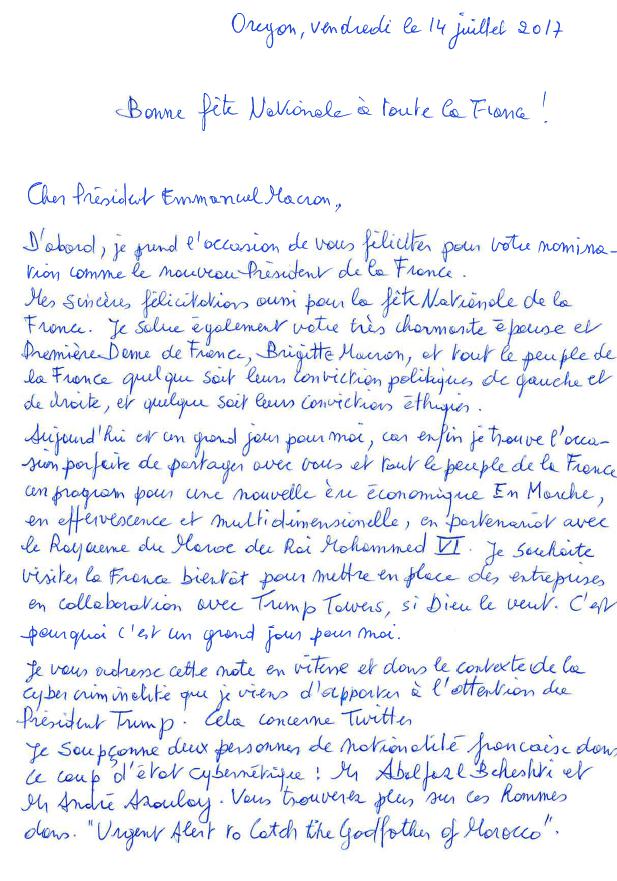 Oregon, vendredi le 14 juillet 2017
Bonne fête Nationale à toute la France !
Cher Président Emmanuel Macron,
D'abord, je prend l'occasion de vous féliciter pour votre nomina-
tion comme le nouveau Président de la France.
Mes sincères félicitations aussi pour la fête Nationale de la
France. Je salue également votre très charmante épouse et
Première Dame de France, Brigitte Macron, et tout le peuple de
la France quelque soit leurs conviction politiques de gauche et
de droite, et quelque soit leurs convictions éthiques.
Aujourd'hui est un grand jour pour moi, car enfin je trouve l'occa-
sion parfaite de partager avec vous et tout le peuple de la France
un program pour une nouvelle ère économique En Marche,
en effervescence et multidimensionelle, en partenariat avec
le Royaume du Maroc du Roi Mohammed VI. Je souhaite
visiter la France bientôt pour mettre en place des entreprises
en collaboration avec Trump Towers, si Dieu le veut. C'est
pourquoi c'est un grand jour pour moi.
Je vous adresse cette note en vitesse et dans le contexte de la
cybercriminalité que je viens d'apporter à l'attention du
Président Trump. Cela concerne Twitter
Je soupçonne deux personnes de nationalité francaise dans
le coup d'état cybernétique : Mr Abolfazl Beheshti et
Mr André Azoulay. Vous trouverez plus sur ces hommes
dans. "Urgent Alert to Catch the Godfather of Morocco".